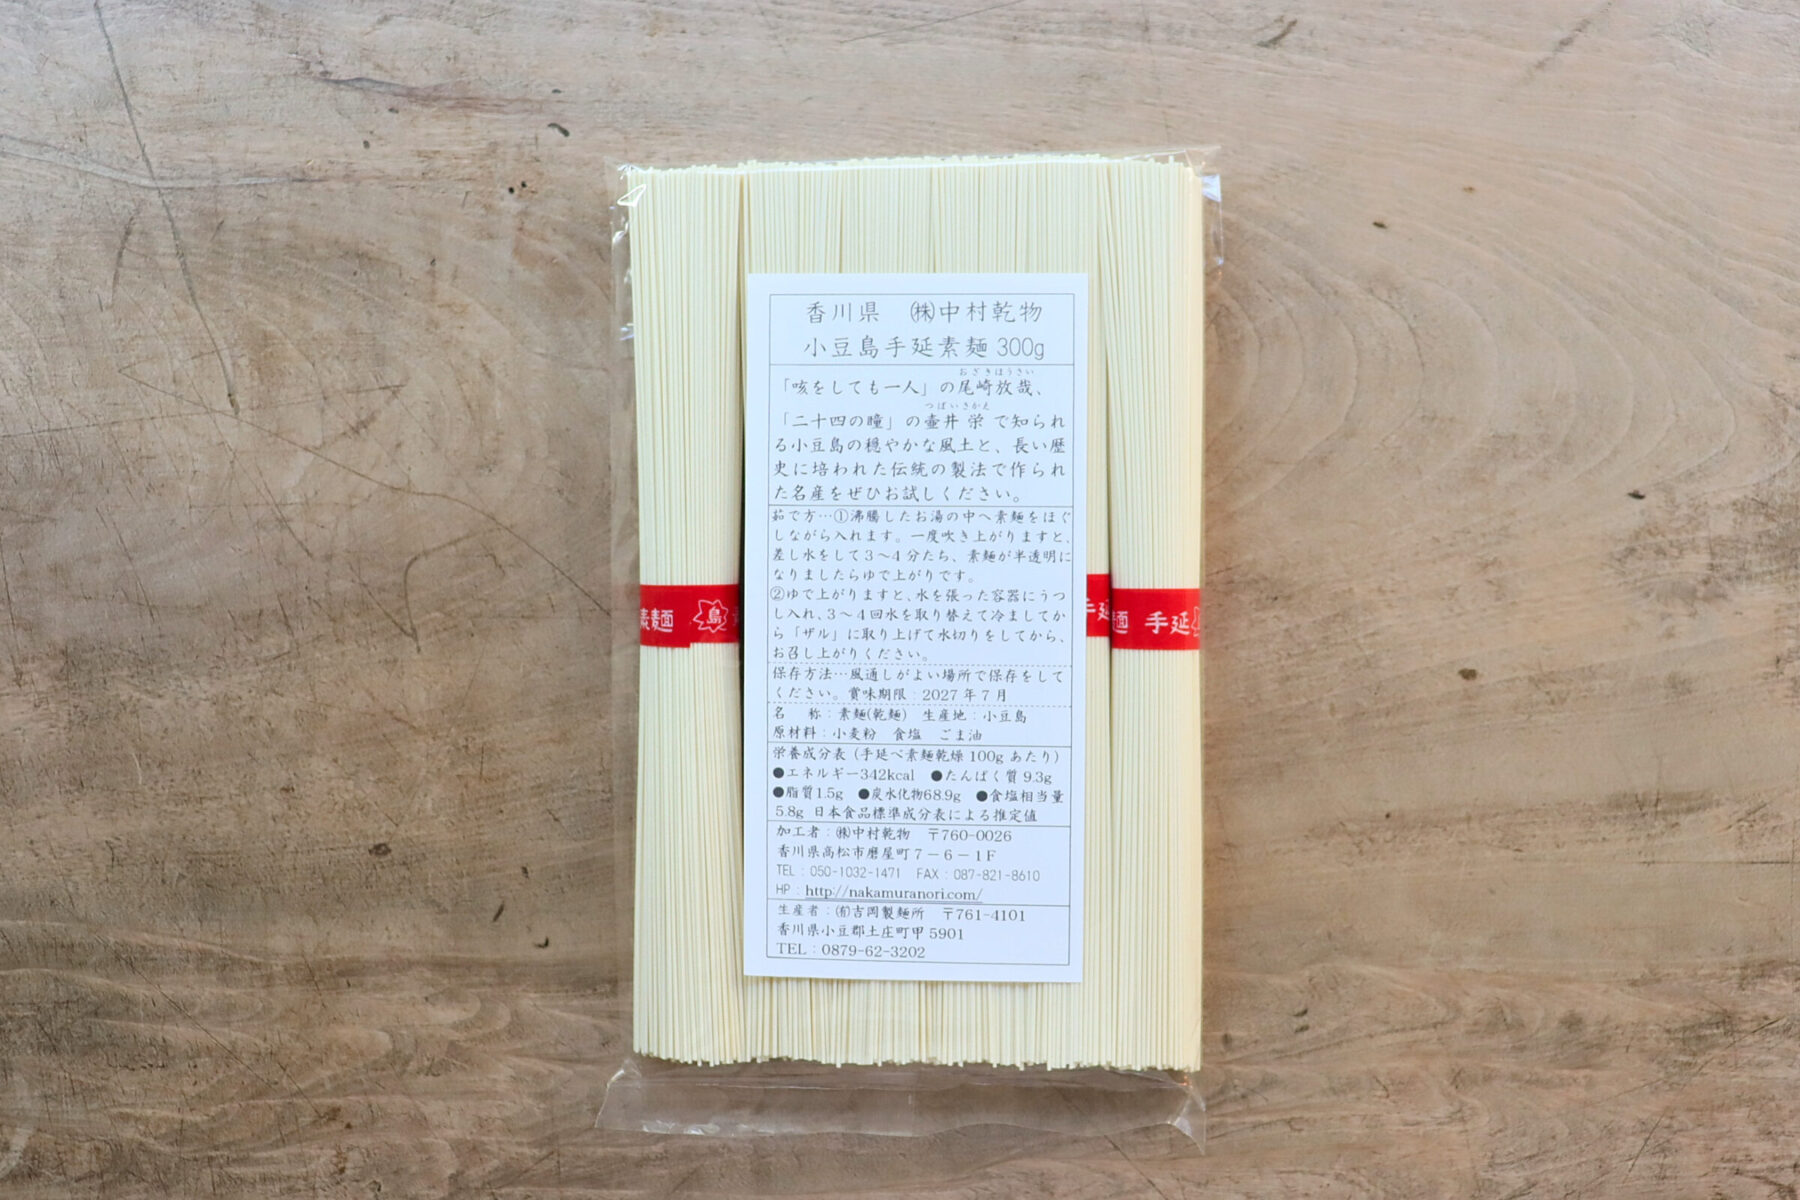 香川県　㈱中村乾物
小豆島手延素麺 300g
おざきほうさい
「咳をしても一人」の尾崎放哉、
つぼいさかえ
「二十四の瞳」の壷井 栄 で知られ
る小豆島の穏やかな風土と、長い歴
史に培われた伝統の製法で作られ
た名産をぜひお試しください。
茹で方…①沸騰したお湯の中へ素麺をほぐ
しながら入れます。一度吹き上がりますと、
差し水をして３～４分たち、素麺が半透明に
なりましたらゆで上がりです。
②ゆで上がりますと、水を張った容器にうつ
し入れ、３～４回水を取り替えて冷ましてか
ら「ザル」に取り上げて水切りをしてから、
お召し上がりください。
保存方法…風通しがよい場所で保存をして
ください。賞味期限：2027 年 7 月
名　称：素麺(乾麺)　生産地：小豆島
原材料：小麦粉　食塩　ごま油
栄養成分表（手延べ素麺乾燥 100g あたり）
●エネルギー342kcal　●たんぱく質 9.3g
●脂質1.5g　●炭水化物68.9g　●食塩相当量
5.8g 日本食品標準成分表による推定値
加工者：㈱中村乾物　〒760-0026
香川県高松市磨屋町７－６－１Ｆ
TEL：050-1032-1471　FAX：087-821-8610
HP：http://nakamuranori.com/
生産者：㈲吉岡製麺所　〒761-4101
香川県小豆郡土庄町甲 5901
TEL：0879-62-3202
素麺 島
手延
麺 手延